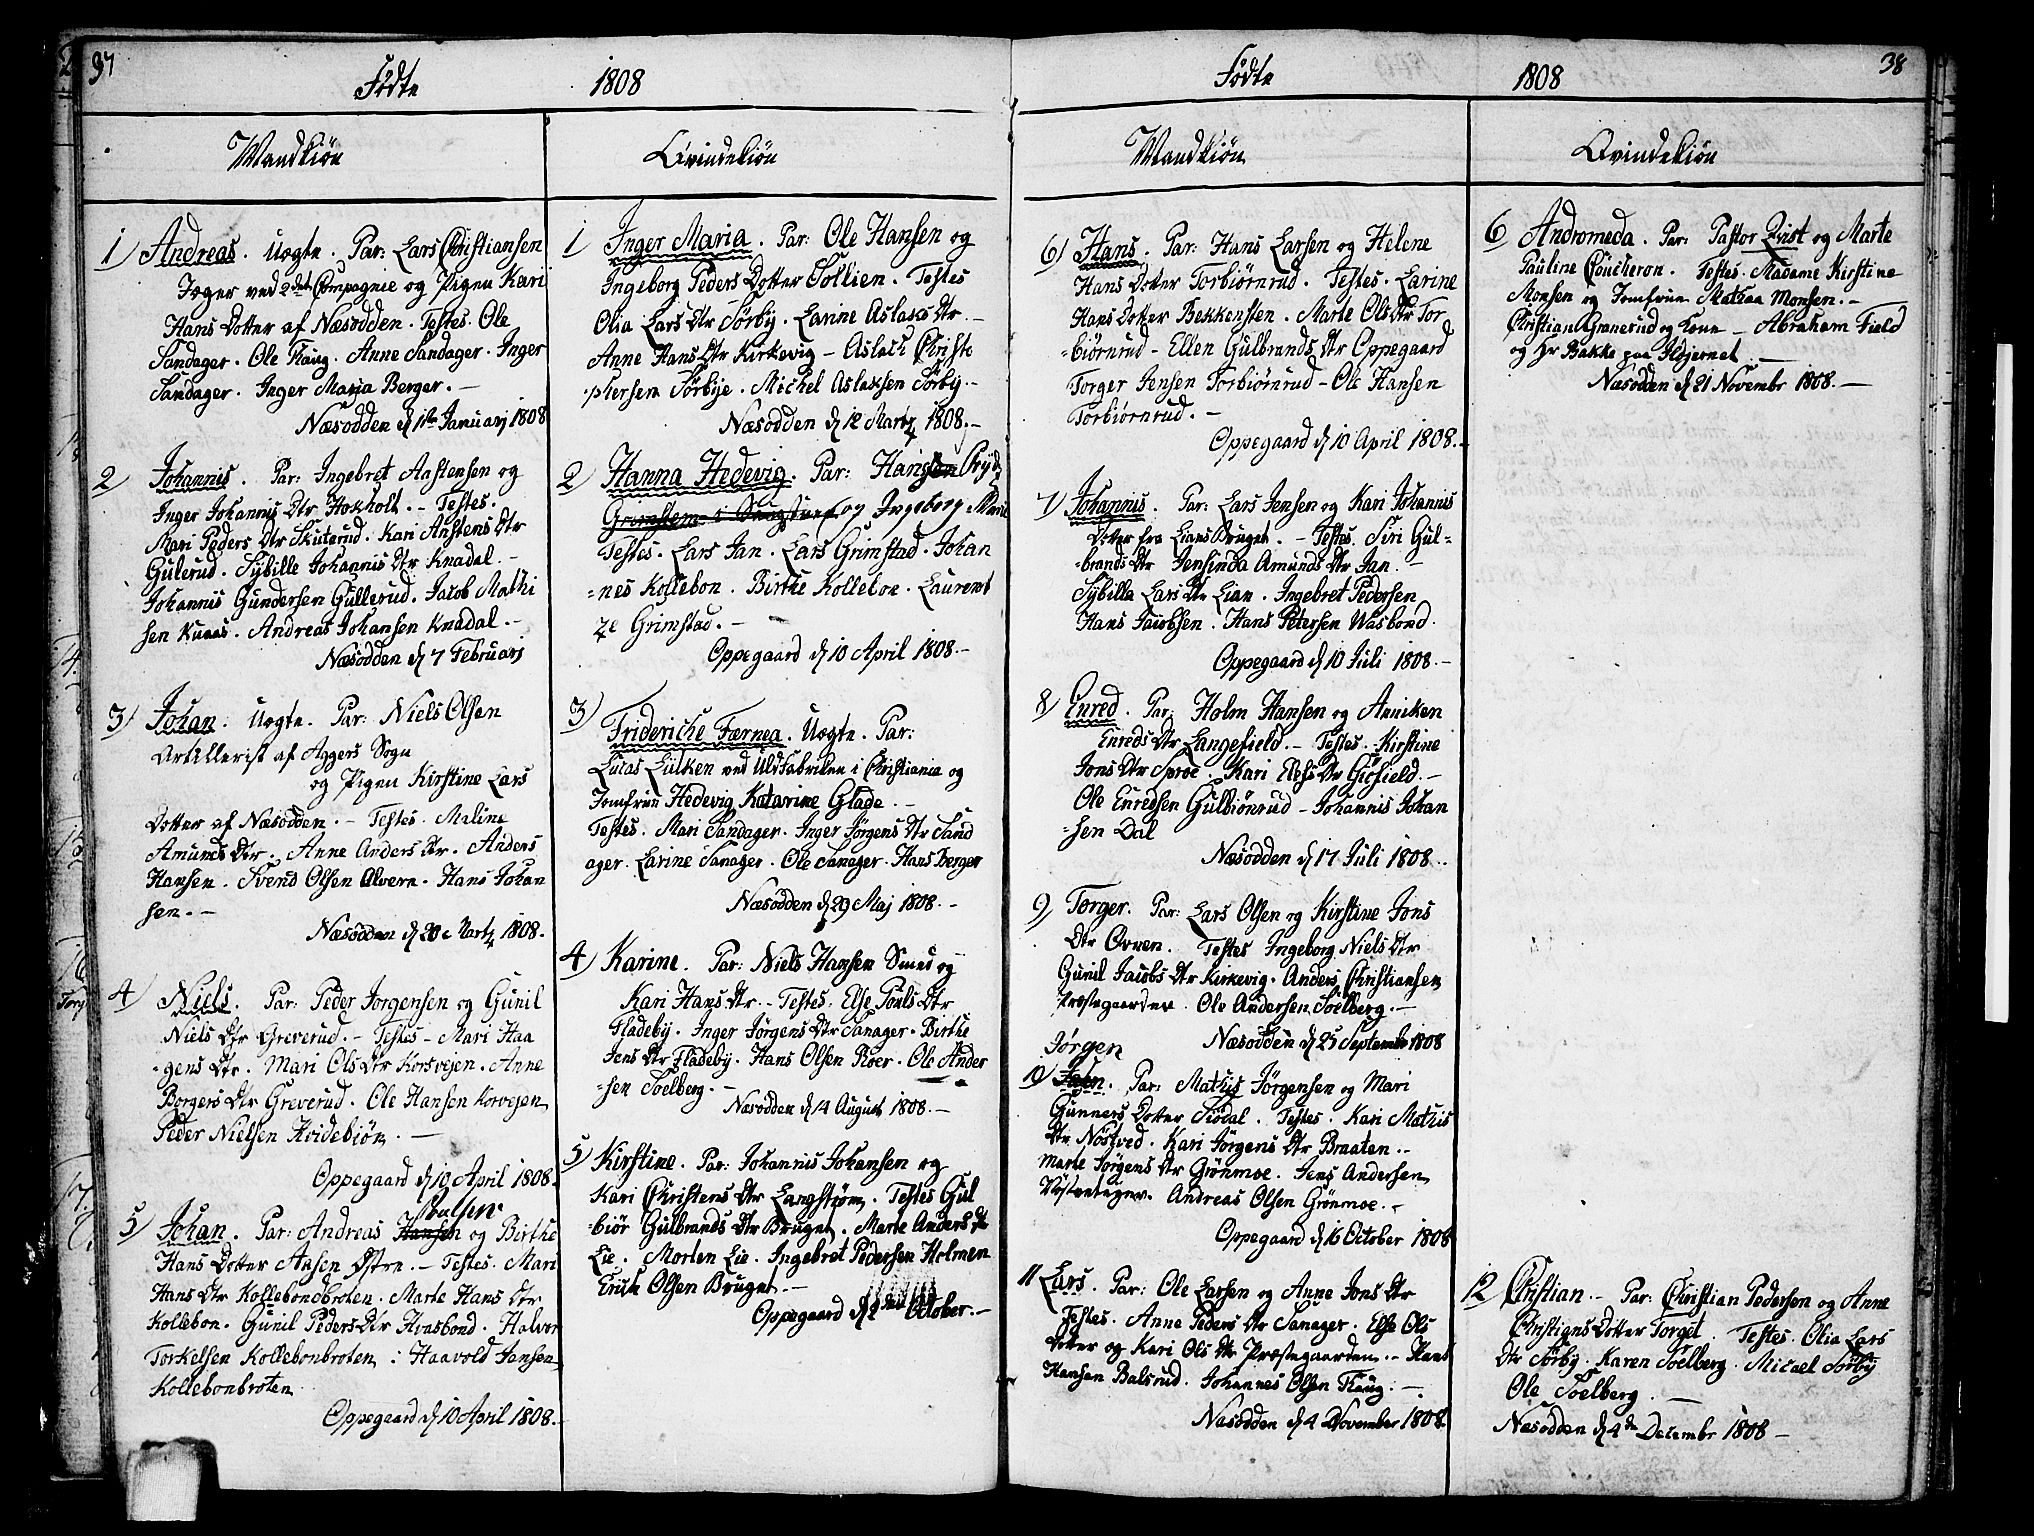 37
Fødte 1808
Mandkiøn
1) Andreas. Uegte. Par: Lars Christiansen
Jæger ved 2det Compagnie og Pigen Kari
Hans Dotter af Næsodden. Testes. Ole
Sandager. Ole Haug. Anne Sandager. Inger
Sandager. Inger Maria Berger. —
Næsodden d 1te Januarj 1808
2) Johannis. Par: Ingebret Aastensen og
Inger Johannis Dtr Hokholt. – Testes.
Mari Peders Dtr Skuterud. Kari Aastens Dtr
Gulerud. Sybille Johannis Dtr Knadal. –
Johannis Gundersen Gullerud. Jacob Mathi
sen Knaus. Andreas Johansen Knadal. –
Næsodden d 7 Februarj
3) Johan. Uegte. Par: Niels Olsen
Artillerist af Aggers Sogn
og Pigen Kirstine Lars
Dotter af Næsodden. – Testes. Maline
Amunds Dtr. Anne Anders Dtr. Anders
Hansen. Svend Olsen Alvern. Hans Johan
sen. –
Næsodden d 20 Martz 1808.
4) Niels. Par: Peder Jorgensen og Gunil
Niels Dtr Greverud. – Testes – Mari Haa
gens Dtr. Mari Ols Dtr Korsvejen. Anne
Borgers Dtr Greverud. Ole Hansen Korvejen
Peder Nielsen Hvidebiøn. —
Oppegaard d 10 April 1808.
Poulsen
5) Johan. Par: Andreas Hansen og Birthe
Hans Dotter Aasen Østre. – Testes. Mari
Hans Dtr Kollebondbroten. Marte Hans Dtr
Kollebon. Gunil Peders Dtr Hvasbond. Halvor
Torkelsen Kollebonbroten : Haavold Jansen
Kollebonbroten
Oppegaard d 10 April 1808.
Qvindekiøn
1) Inger Maria. Par: Ole Hansen og
Ingeborg Peders Dotter Sollien. Testes
Olia Lars Dtr Sørby. Larine Aslaks Dtr. –
Anne Hans Dtr Kirkevig – Aslach Christo
phersen Sørbye. Michel Aslaksen Sørby. –
Næsodden d 12 Martz 1808. –
2) Hanna Hedevig. Par: Hans Pryds
og Ingeborg Marie
Testes. Lars Jan. Lars Grimstad. Johan
=nes Kollebon. Birthe Kolleboe. Laurent
ze Grimstad. –
Oppegaard d 10 April 1808. –
3) Frideriche Færnea. Uegte. Par:
Lucas Lulken ved Uldfabriken i Christiania og
Jomfrue Hedevig Katarine Glade. –
Testes. Mari Sandager. Inger Jørgens Dtr Sand
ager. Larine Sanager. Ole Sanager. Hans Berger
Næsodden d 29 Maj 1808. –
4) Karine. Par: Niels Hansen Smed og
Kari Hans Dtr. – Testes. Else Pouls Dtr
Fladeby. Inger Jørgens Dtr Sanager. Birthe
Jens Dtr Fladeby. Hans Olsen Roer. Ole Ander
=sen Soelberg. –
Næsodden d 14 August 1808. –
5) Kirstine. Par: Johannis Johansen og
Kari Christens Dtr Langstrøm. Testes Gul
=biør Gulbrands Dtr Bruget. Marte Anders Dtr
Lie. Morten Lie. Ingebret Pedersen Holmen
Erick Olsen Bruget. –
Oppegaard d 2den October. –
38
Fødte 1808
Mandkiøn
6) Hans. Par: Hans Larsen og Helene
Hans Dotter Torbiørnrud. Testes. Larine
Hans Dotter Bekkensten. Marte Ols Dtr Tor
=biørnrud – Ellen Gulbrands Dtr Oppegaard
Torger Jensen Torbiørnrud – Ole Hansen
Torbiørnrud. –
Oppegaard d 10 April 1808. –
7) Johannis. Par: Lars Jensen og Kari Johannis
Dotter fra Lians Bruget. – Testes. Siri Gul=
=brands Dtr Jensinda Amunds Dtr Jan. –
Sybilla Lars Dtr Lian. Ingebret Pedersen
Hans Jacobsen. Hans Petersen Wasbond.
Oppegaard d 10 Juli 1808. –
8) Enred. Par: Holm Hansen og Anniken
Enreds Dtr Langefield. – Testes. Kirstine
Jons Dtr Sproe. Kari Elefs Dtr Giøfield. –
Ole Enredsen Gulbiønrud – Johannis Johan
=sen Dal
Næsodden d 17 Juli 1808. .
9) Torger. Par: Lars Olsen og Kirstine Jons
Dtr Ovnen. Testes Ingeborg Niels Dtr
Gunil Jacobs Dtr Kirkevig. Anders Christiansen
Præstegaarden. Ole Andersen Soelberg. –
Næsodden d 25 September 1808
Jørgen
10) Par: Mathis Jørgensen og Mari
Gunners Dotter Siødal. Testes. Kari Mathis
Dtr Nøstved. Kari Jørgens Dtr Braaten. –
Marte Jørgens Dtr Grønmoe. Jens Andersen
Andreas Olsen Grønmoe. –
Oppegaard d 16 October 1808
11 Lars. Par: Ole Larsen og Anne Jons Dtr
Testes. Anne Peders Dtr Sanager. Else Ols
Dotter og Kari Ols Dtr Præstegaarden. – Hans
Hansen Balsrud. Johannes Olsen Haug. –
Næsodden d 4 November 1808.
Qvindekiøn
6 Andromeda. Par: Pastor Qvist og Marte
Pauline Coucheron. Testes. Madame Kirstine
Monsen og Jomfrue Mathea Monsen. –
Christian Granerud og Kone – Abraham Field
og Hr Bakke paa Ildjernet. —
Næsodden d 21 Novembr 1808. —
12 Christian. – Par: Christian Pedersen og Anne
Christians Dotter Torget. Testes. Olia Lars
Dtr Sørby. Karen Soelberg. Micael Sørby
Ole Soelberg. —
Næsodden d 4de Decembr 1808 –